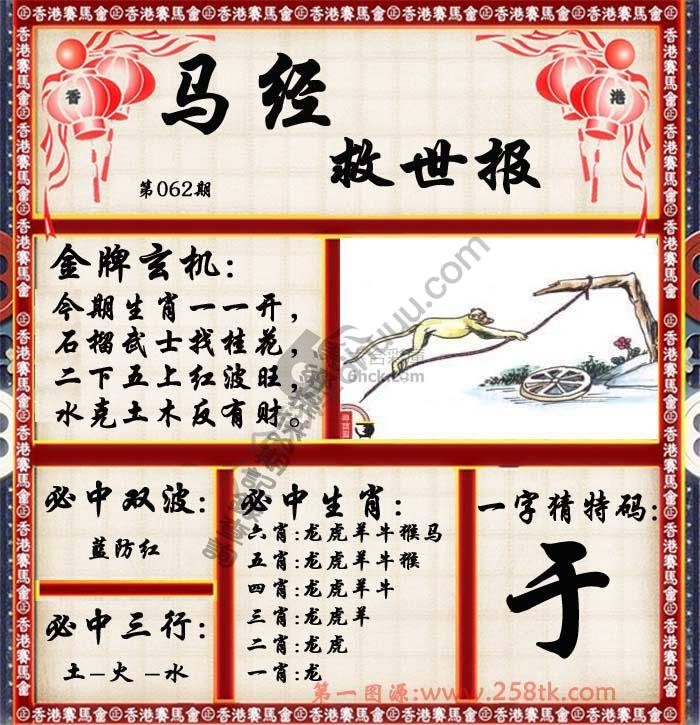 香 港
马经
救世报
第062期
金牌玄机:
今期生肖一一开,
石榴武士找桂花,
二下五上红波旺,
水克土木反有财。
必中双波:
蓝防红
必中三行:
土-火-水
必中生肖:
六肖:龙虎羊牛猴马
五肖:龙虎羊牛猴
四肖:龙虎羊牛
三肖:龙虎羊
二肖:龙虎
一肖:龙
一字猜特码:
于
第一图源:www.258tk.com
香港赛馬會